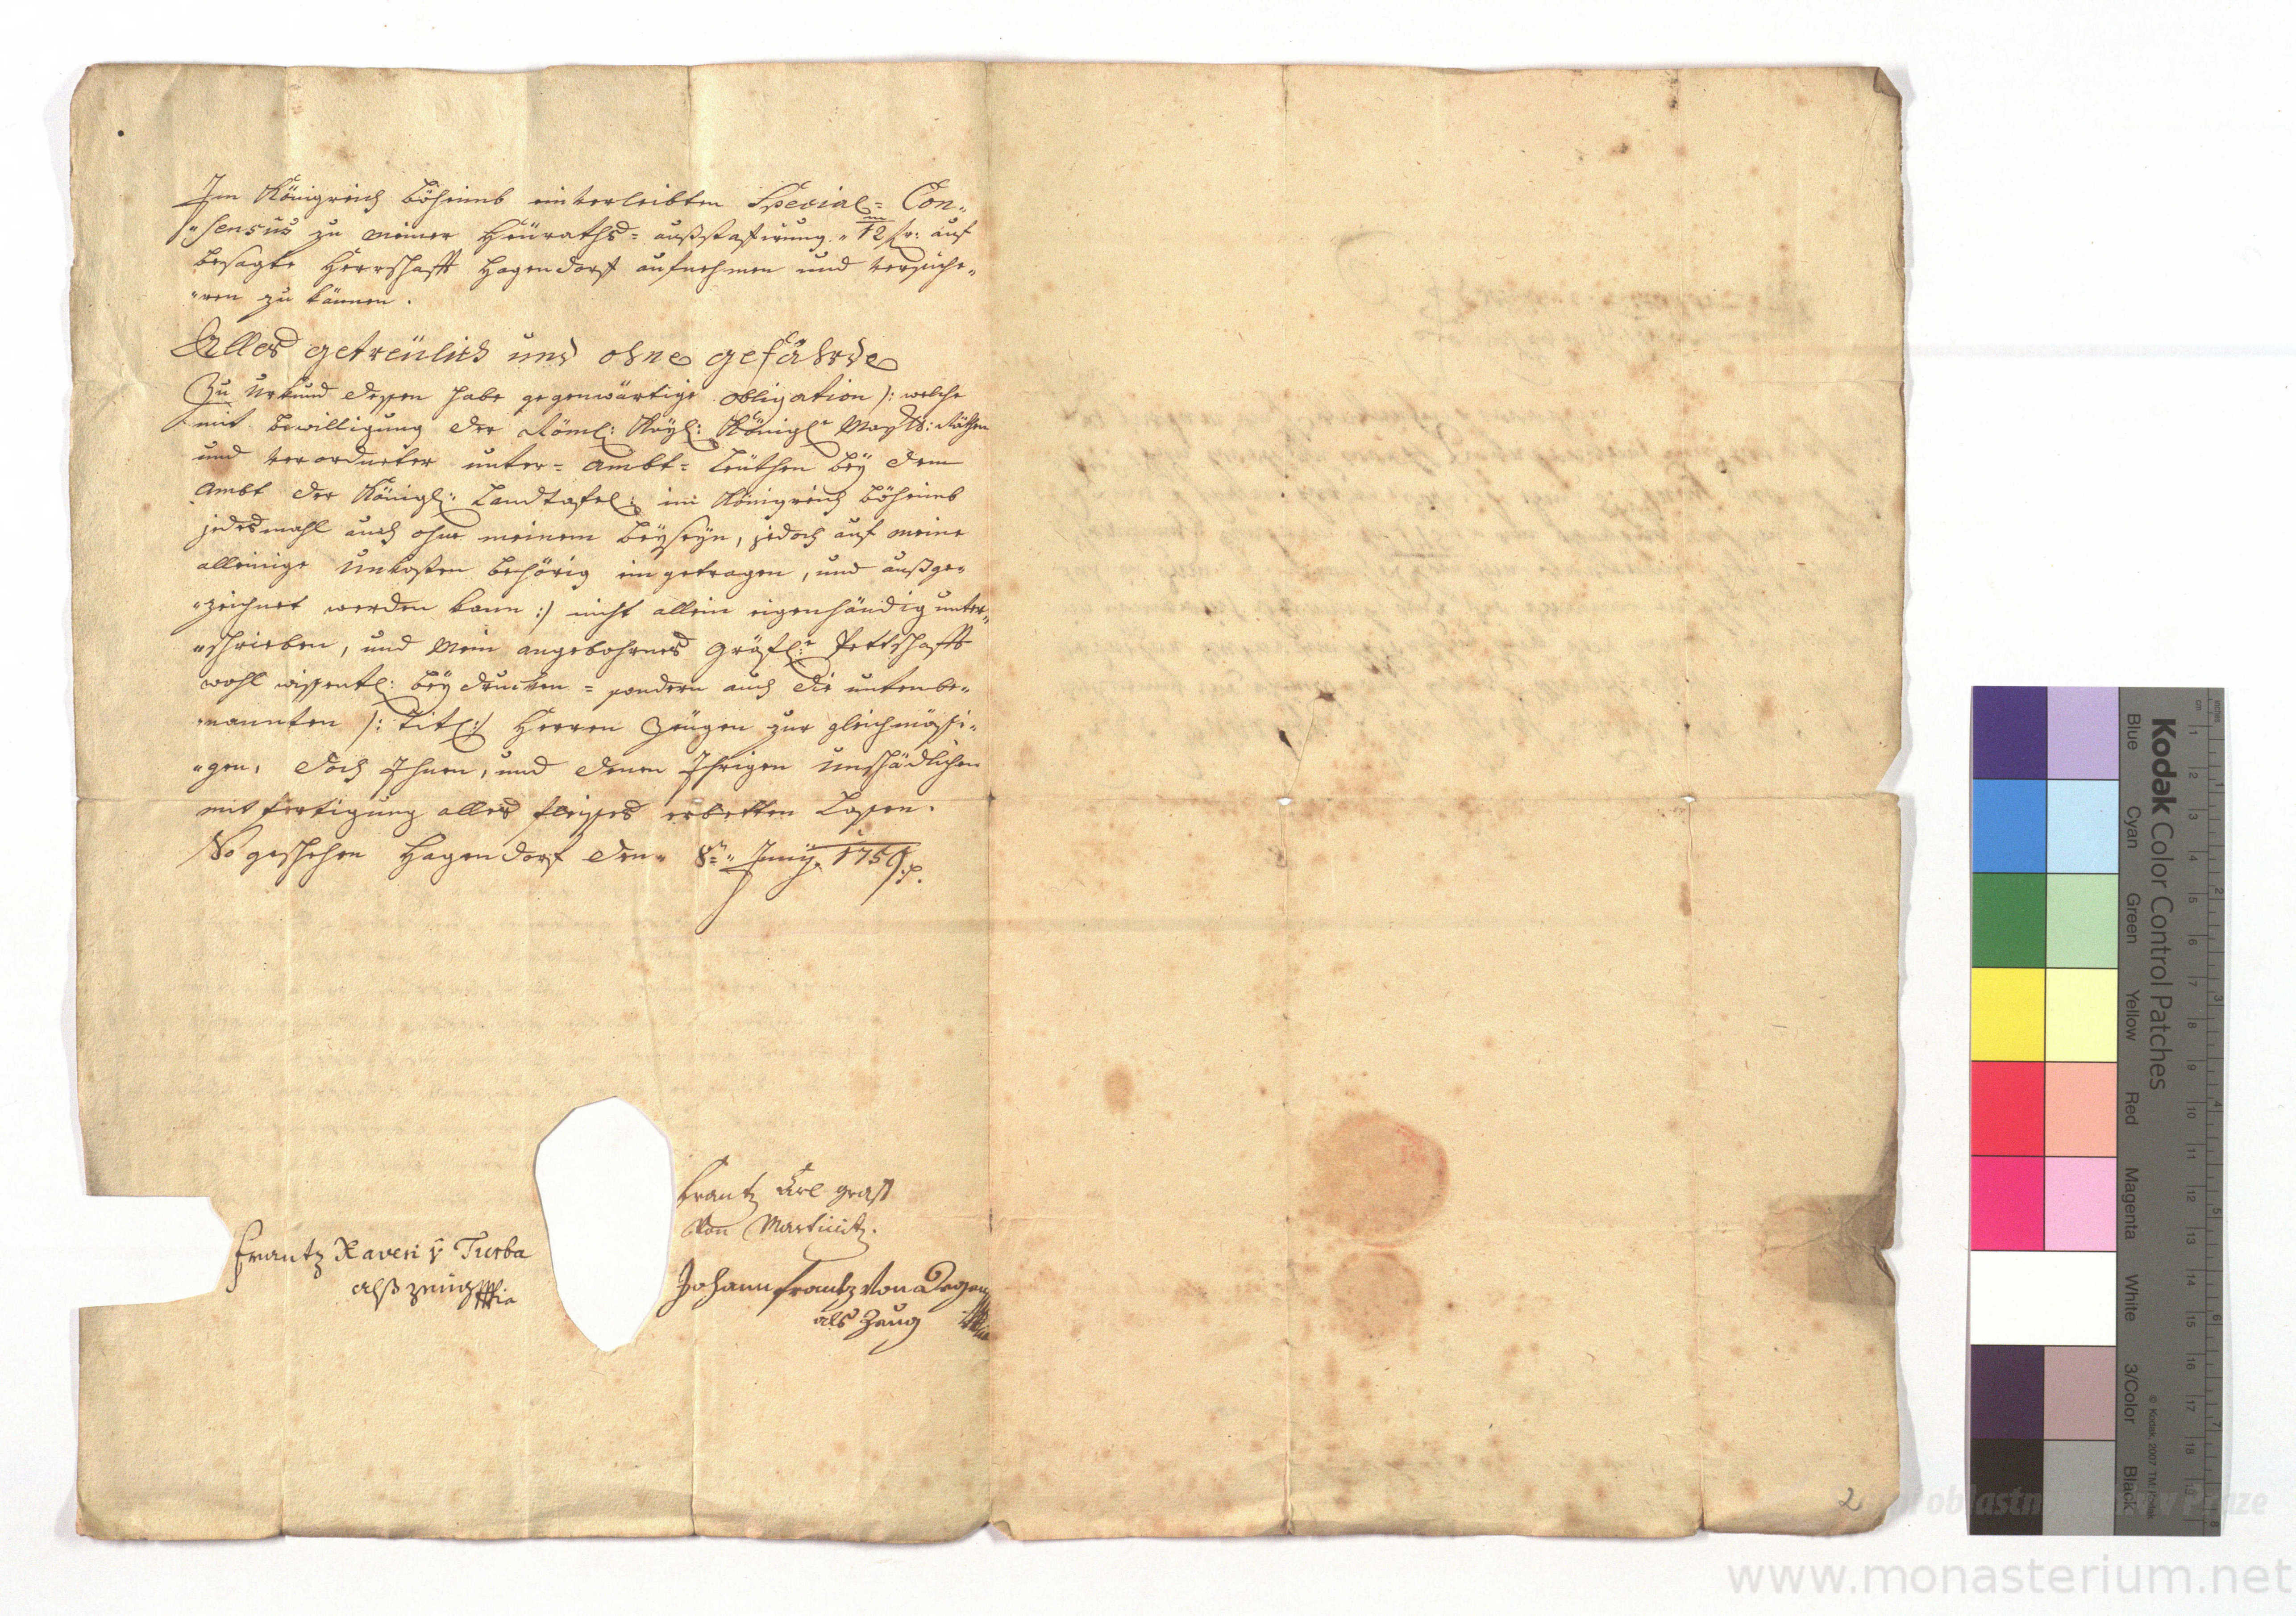 Im Königreich Böheimb einverleibten Special= Con„
„sensus zu meiner Heüraths= außstafirung „ 12/m fr: auf
besagte Herrschafft Hagendorf aufnehmen und versiche„
„ren zu können.
Alles getreülich und ohne gefährde
Zu Urkund dessen habe gegenwärtige obligation /: welche
mit bewilligung der Röml: Kayl: Königl: May: Räthen
und verordneter unter= Ambt= Leüthen bey dem
Ambt der Königl: Landtafel: im Königreich Böheimb
jedesmahl auch ohne meinem beyseyn, jedoch auf meine
alleinige Unkosten behörig in getragen, und außge„
„zeichnet werden kann :/ nicht allein eigenhändig unter„
„schrieben, und Mein angebohrnes Gräfl: Pettschafft
wohl wissentl: bey drucken = sondern auch die untenbe„
„nannten /: Titl: / Herren Zeügen zur gleichmässi„
„gen, doch Ihnen, und denen Ihrigen Unschädlichen
mit fertigung alles fleisses erbetten Lassen.
So geschehen Hagendorf den „ 8t „ Juny 1759.
Frantz Carl graff
Von Martinitz.
Frantz Xaveri v. Turba
alß zeüg mpia
Johann frantz Von
als Zeug
2
Kodak Color Control Patches
Blue Cyan Green Yellow Red Magenta White 3/Color Black
© Kodak, 2007 TM: Kodak
www.monasterium.net